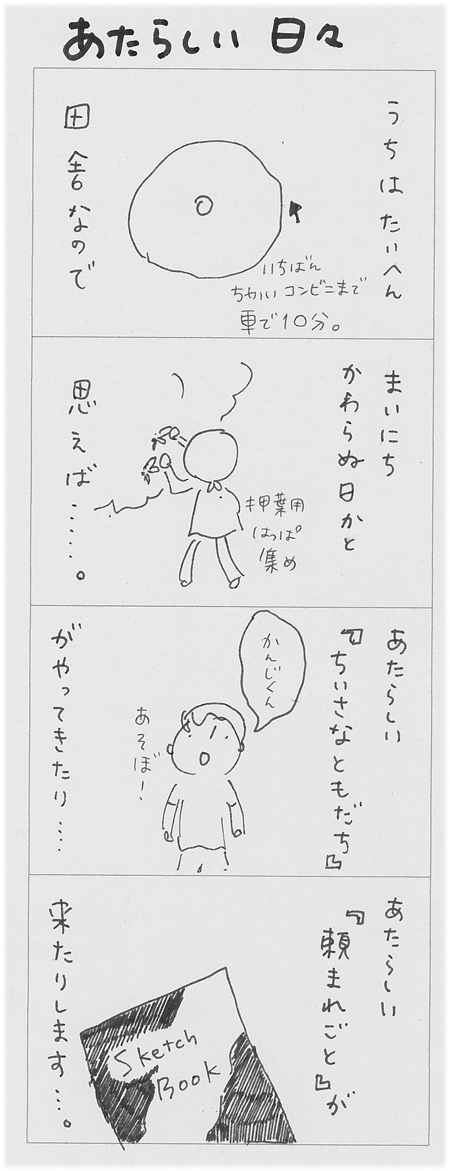 あたらしい 日々
うちはたいへん
田舎なので
いちばん
ちかいコンビニまで
車で10分。
まいにち
かわらぬ日かと
思えば……。
押葉用
はっぱ
集め
あたらしい
『ちいさなともだち』
がやってきたり….
かんじくん
あそぼー、
あたらしい
『頼まれごと』が
来たりします…。
Sketch
Book